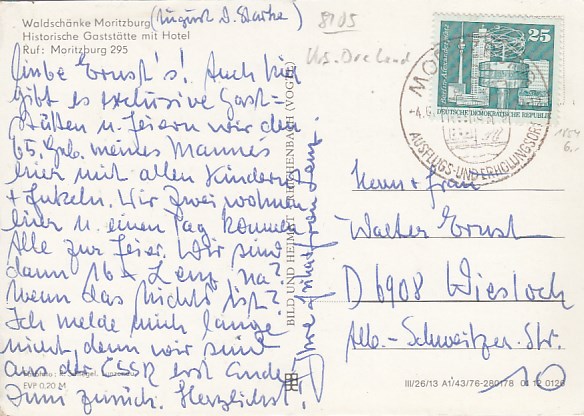 Waldschänke Moritzburg
Historische Gaststätte mit Hotel
Ruf: Moritzburg 295
(August d. Starke)
8105
Liebe Ernst's! Auch hier
gibt es exclusive Gast-
stätten u. feiern wir den
65. Geb. meines Mannes
hier mit allen Kindern
+ Enkeln. Wir zwei wohnen
hier u. einen Tag kommen
Alle zur Feier. Wir sind
dann 16 x Lenz, na?
wenn das nichts ist?
Ich melde mich lange
nicht, denn wir sind
aus der ČSSR erst Ende
Juni zurück. Herzlichst!
Ihre
BILD UND HEIMAT REICHENBACH (VOGTL)
EVP 0,20 M
III/26/13 A1/43/76-280178 01 12 0126
25
DEUTSCHE DEMOKRATISCHE REPUBLIK
AUSFLUGS- UND ERHOLUNGSORT
Herrn + Frau
Walter Ernst
D 6908 Wiesloch
Alb.-Schweitzer-Str.
10